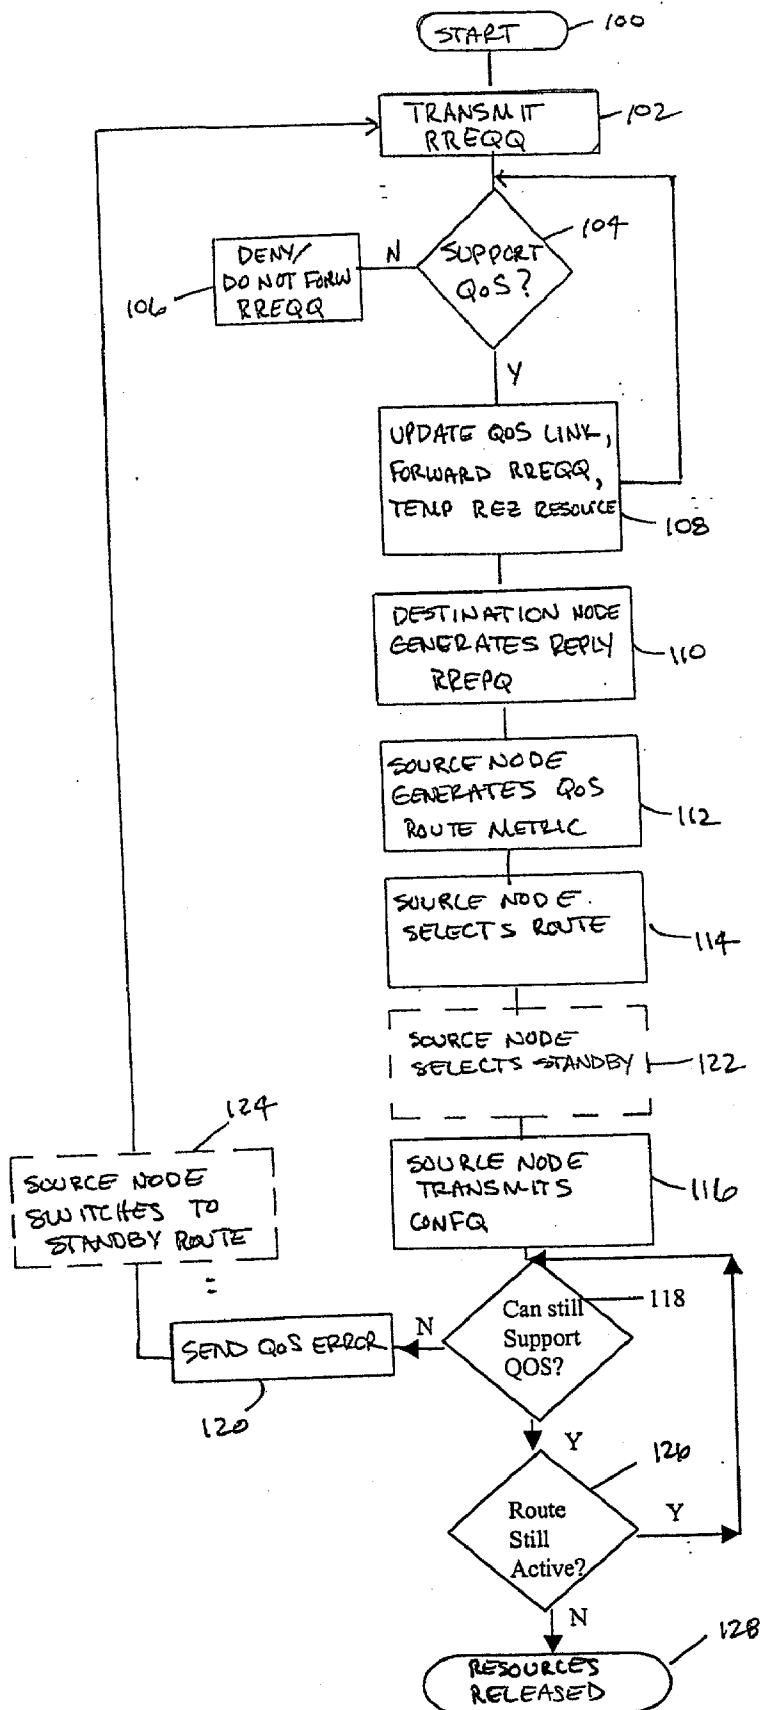 START
100
TRANSMIT
RREQQ
102
SUPPORT
QoS?
104
N
DENY/
DO NOT FORW
RREQQ
106
Y
UPDATE QOS LINK,
FORWARD RREQQ,
TEMP REZ RESOURCE
108
DESTINATION NODE
GENERATES REPLY
RREPQ
110
SOURCE NODE
GENERATES QOS
ROUTE METRIC
112
SOURCE NODE
SELECTS ROUTE
114
SOURCE NODE
SELECTS STANDBY
122
124
SOURCE NODE
SWITCHES TO
STANDBY ROUTE
SOURCE NODE
TRANSMITS
CONFQ
116
Can still
Support
QOS?
118
N
SEND QOS ERROR
120
Y
Route
Still
Active?
126
Y
N
RESOURCES
RELEASED
128